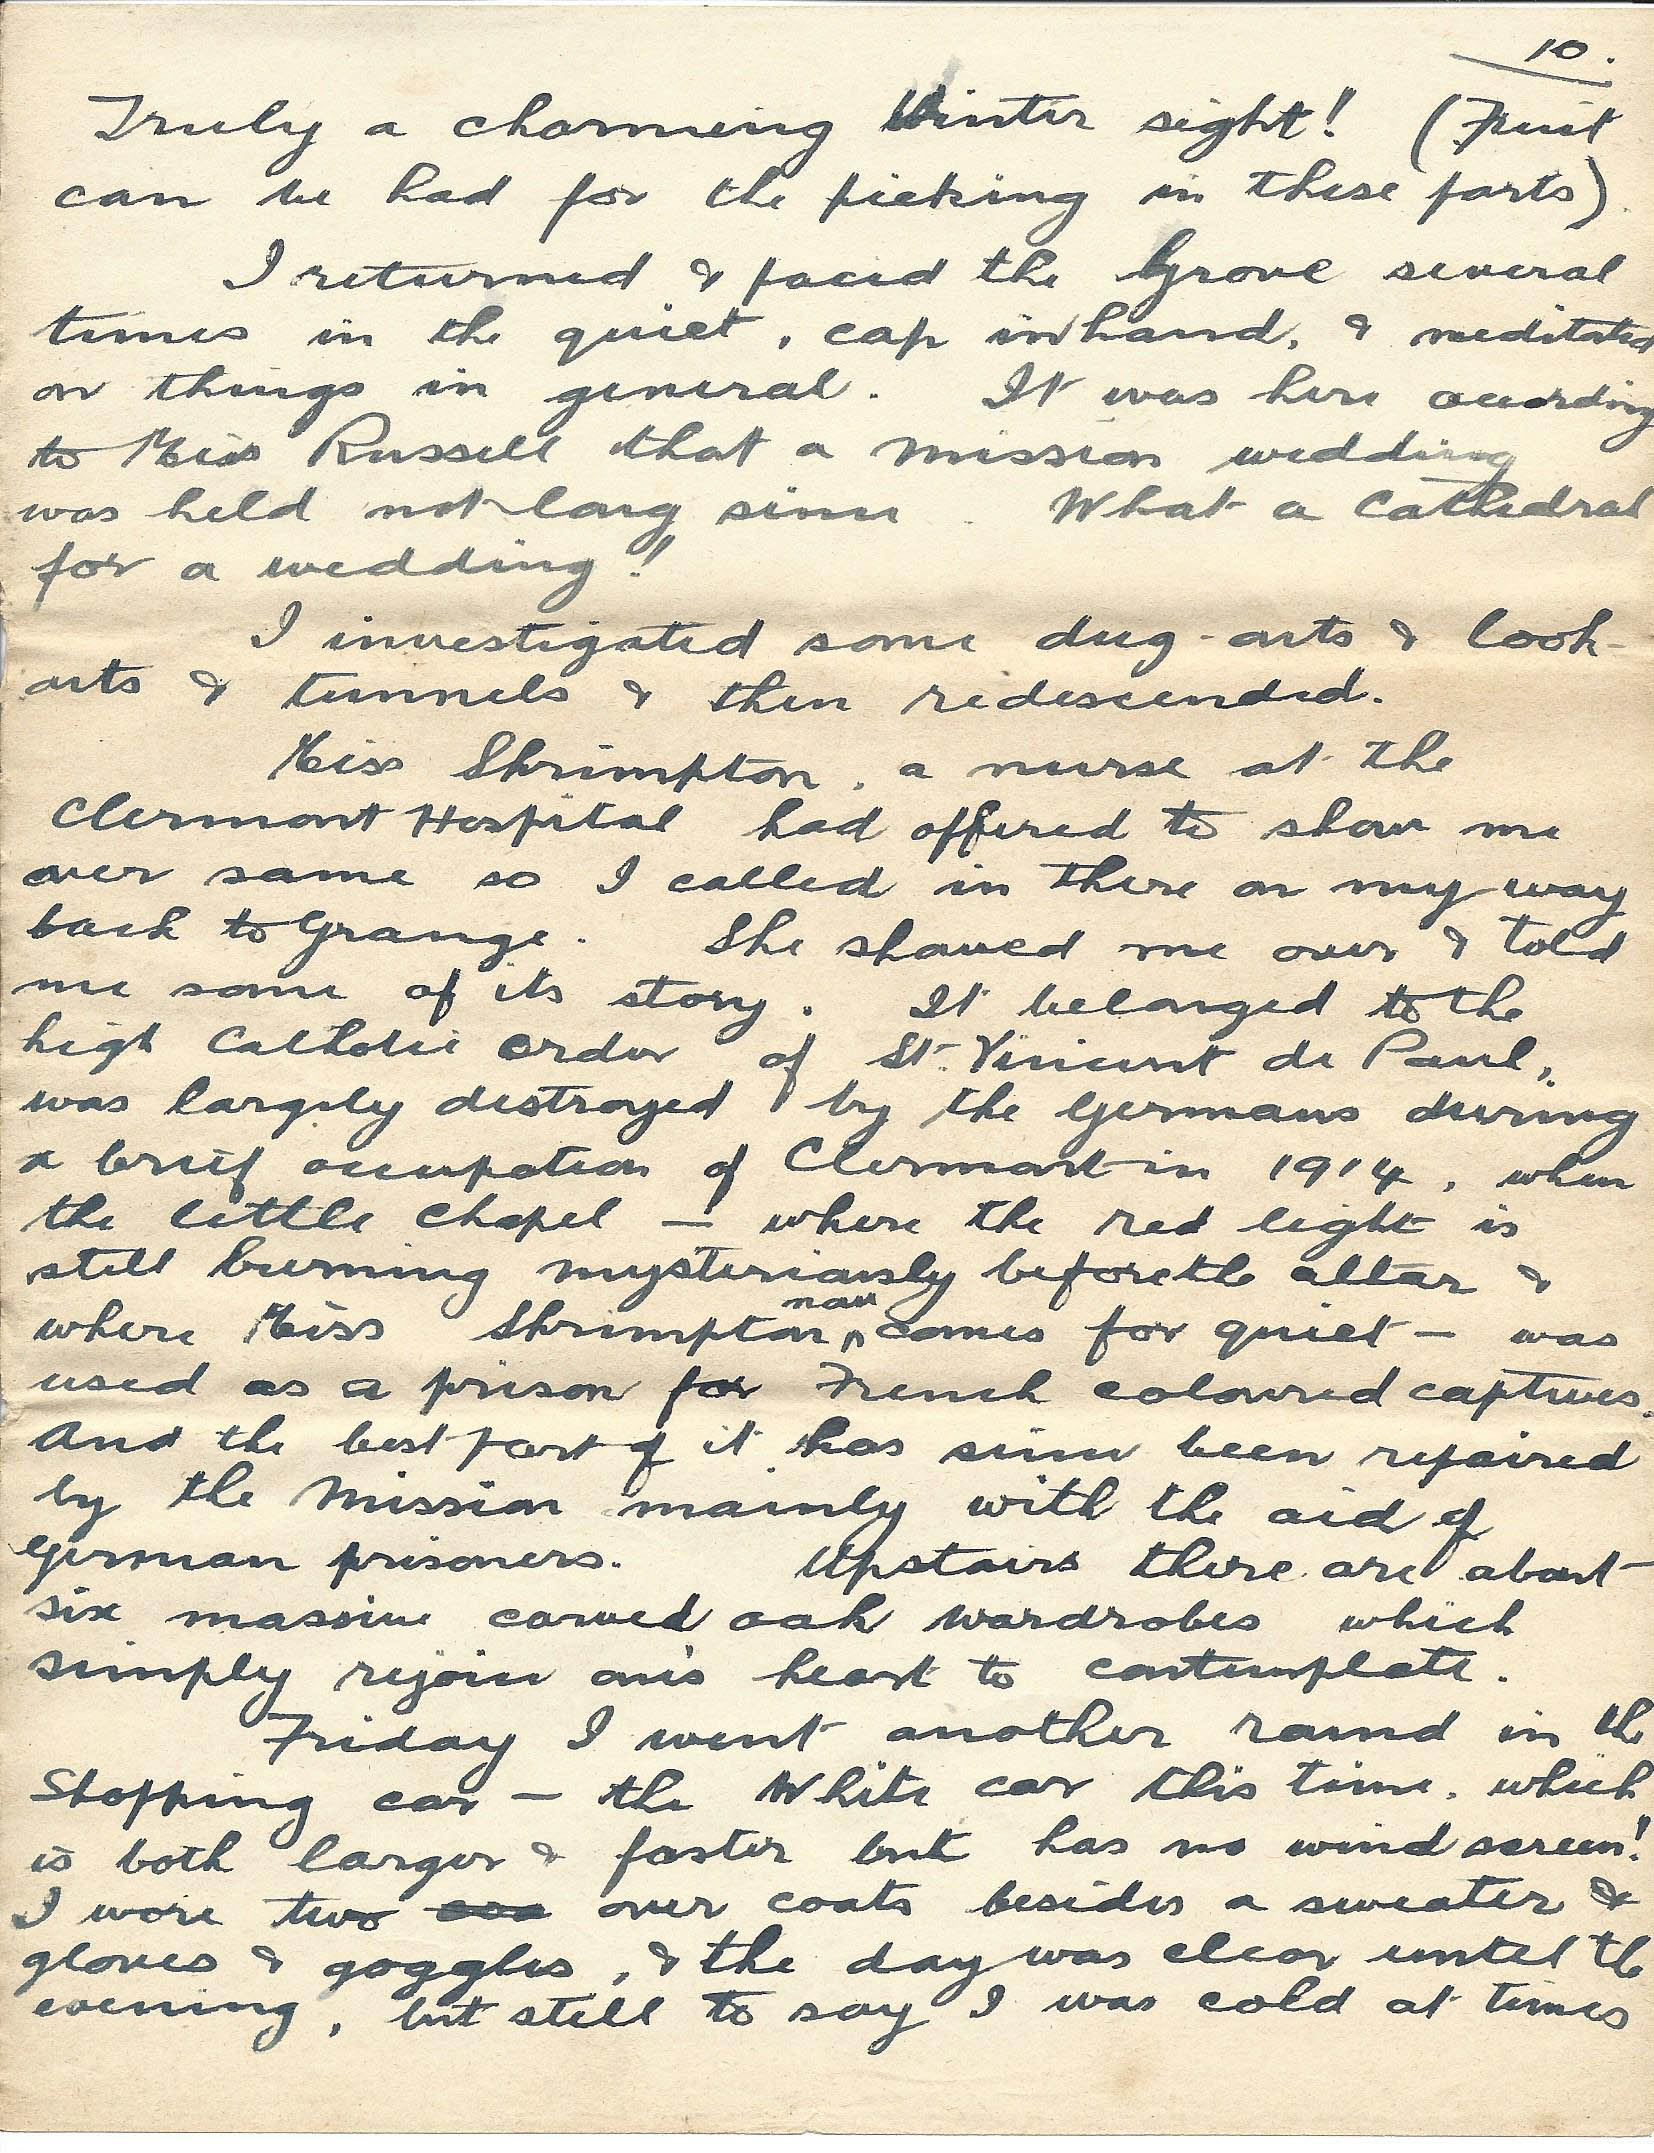 10.
Truly a charming Winter sight! (Fruit
can be had for the picking in these parts)
I returned & paced the Grove several
times in the quiet, cap in hand, & meditated
on things in general. It was here according
to Miss Russell that a mission wedding
was held not long since. What a Cathedral
for a wedding!
I investigated some dug-outs & look-
outs & tunnels & then redescended.
Miss Shrimpton, a nurse at the
Clermont Hospital had offered to show me
over same so I called in there on my way
back to Grange. She showed me over & told
me some of its story. It belonged to the
high Catholic order of St. Vincent de Paul,
was largely destroyed by the Germans during
a brief occupation of Clermont in 1914, when
the little chapel — where the red light is
still burning mysteriously before the altar &
where Miss Shrimpton now comes for quiet — was
used as a prison for French coloured captives.
And the best part of it has since been repaired
by the Mission mainly with the aid of
German prisoners. Upstairs there are about
six massive carved oak wardrobes which
simply rejoice one's heart to contemplate.
Friday I went another round in the
Shopping car — the White car this time, which
is both larger & faster but has no wind screen!
I wore two coa over coats besides a sweater &
gloves & goggles, & the day was clear until the
evening, but still to say I was cold at times